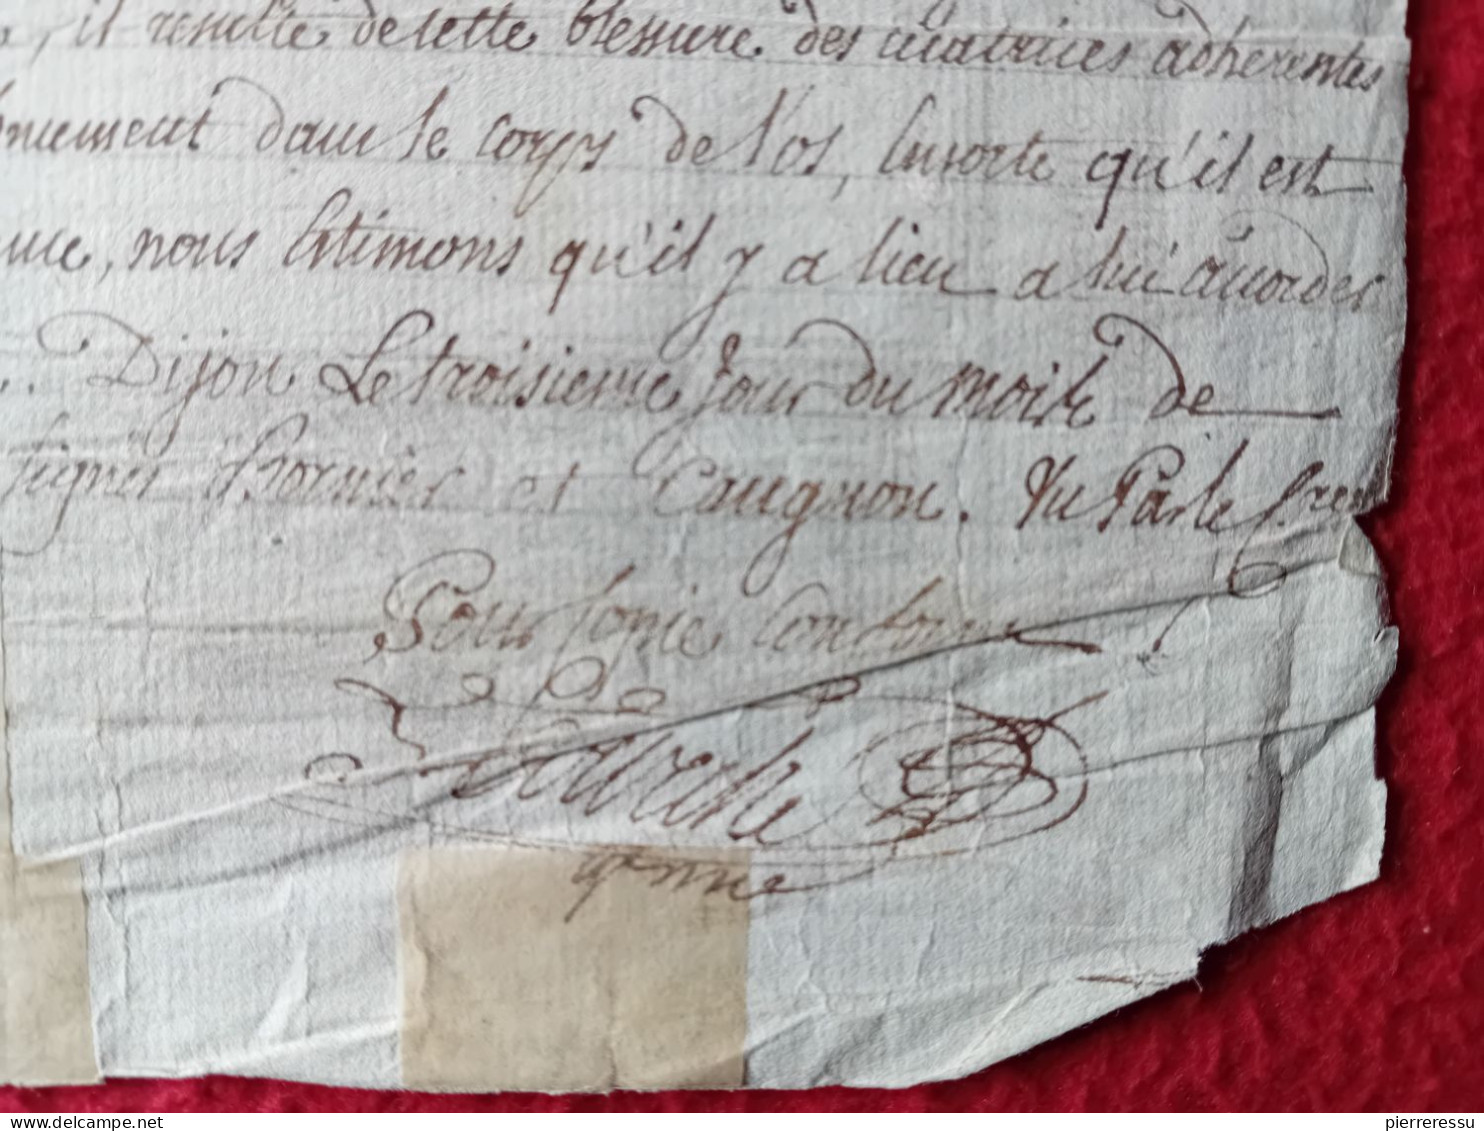 , il resulte de cette blessure des cicatrices adherentes
dans le corps de l'os, Ensorte qu'il est
nous Estimons qu'il y a lieu a lui accorder
.. Dijon Le troisieme Jour du mois de
signés et Caugnon. Vu Par le
Pour Copie Conforme
pierreressu